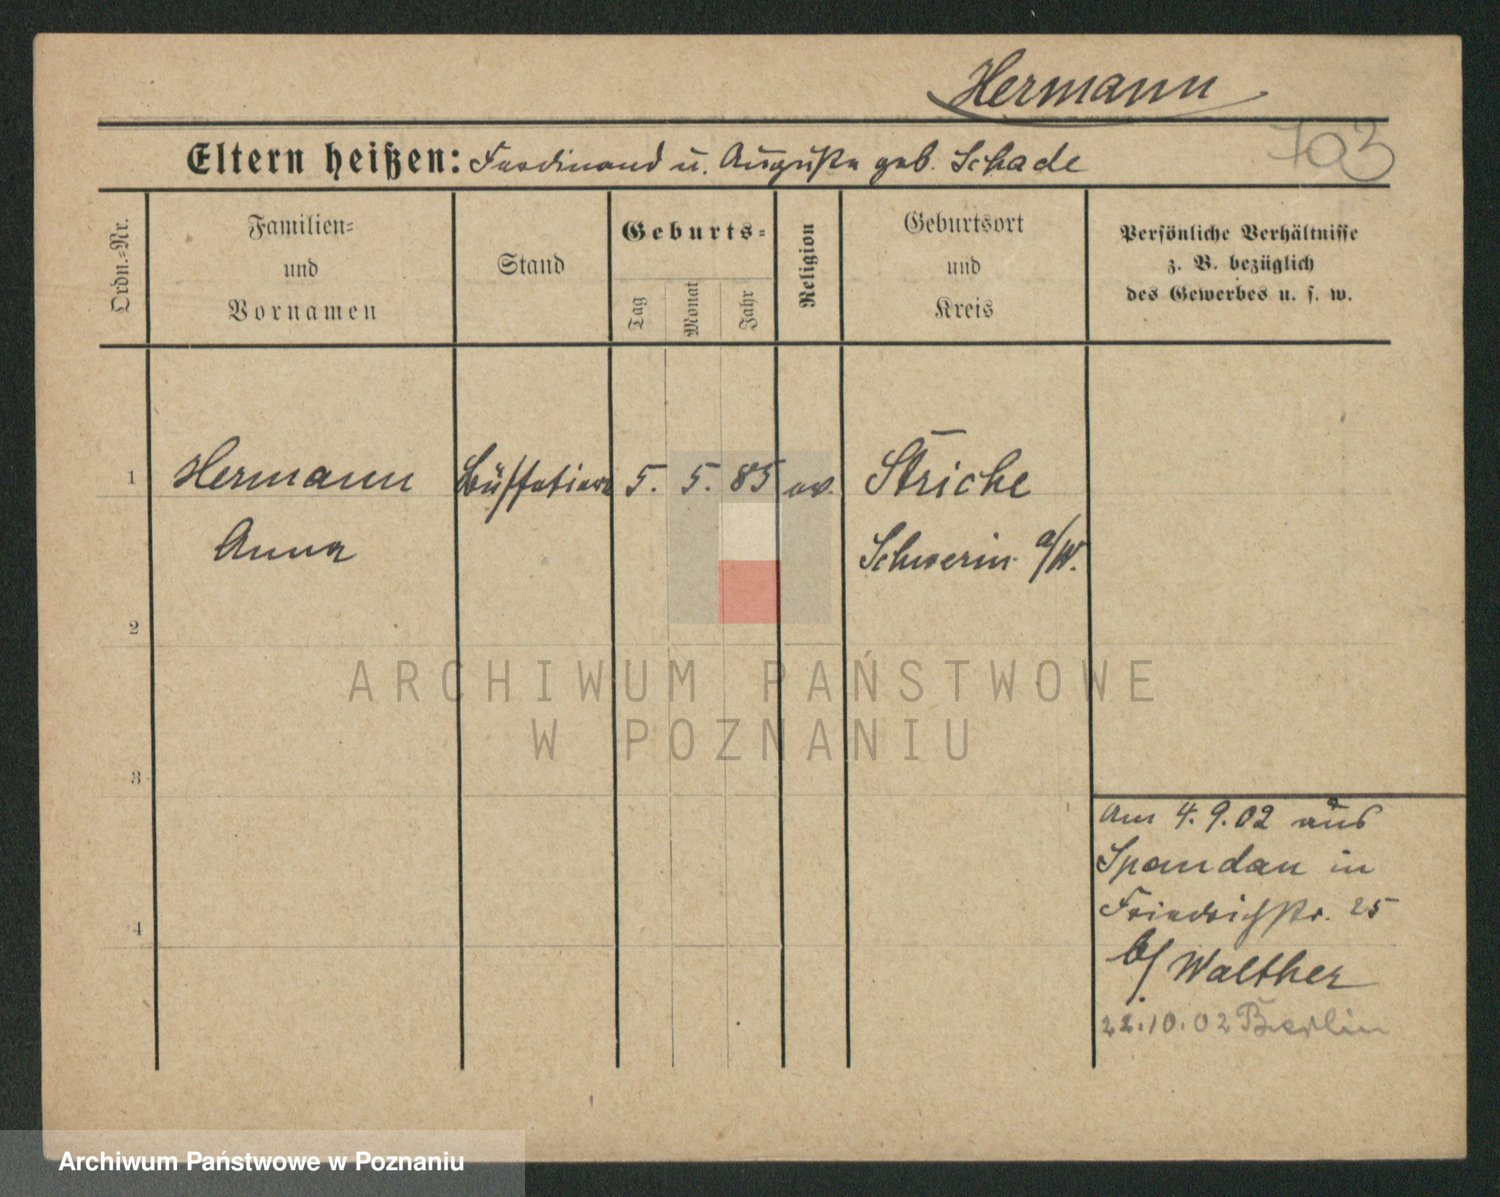 Hermann
103
Eltern heißen: Ferdinand u. Auguste geb. Schade
Ordn.-Nr.
Familien- und Vornamen
Stand
Geburts-
Tag
Monat
Jahr
Religion
Geburtsort und Kreis
Persönliche Verhältnisse
z. B. bezüglich
des Gewerbes u. s. w.
1 Hermann Büffetiere 5. 5. 85 ev. Striche
Anna Schwerin a/W.
2
ARCHIWUM PAŃSTWOWE
W POZNANIU
3
Am 4.9.02 aus
Spandau in
Friedrichstr. 25
4
b/ Walther
22.10.02 Berlin
Archiwum Państwowe w Poznaniu